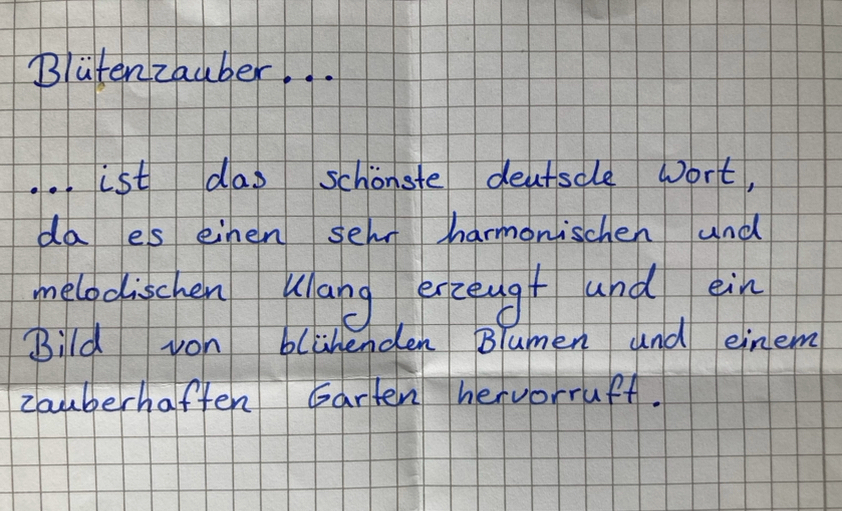 Blütenzauber...
... ist das schönste deutsche Wort,
da es einen sehr harmonischen und
melodischen Klang erzeugt und ein
Bild von blühenden Blumen und einem
zauberhaften Garten hervorruft.